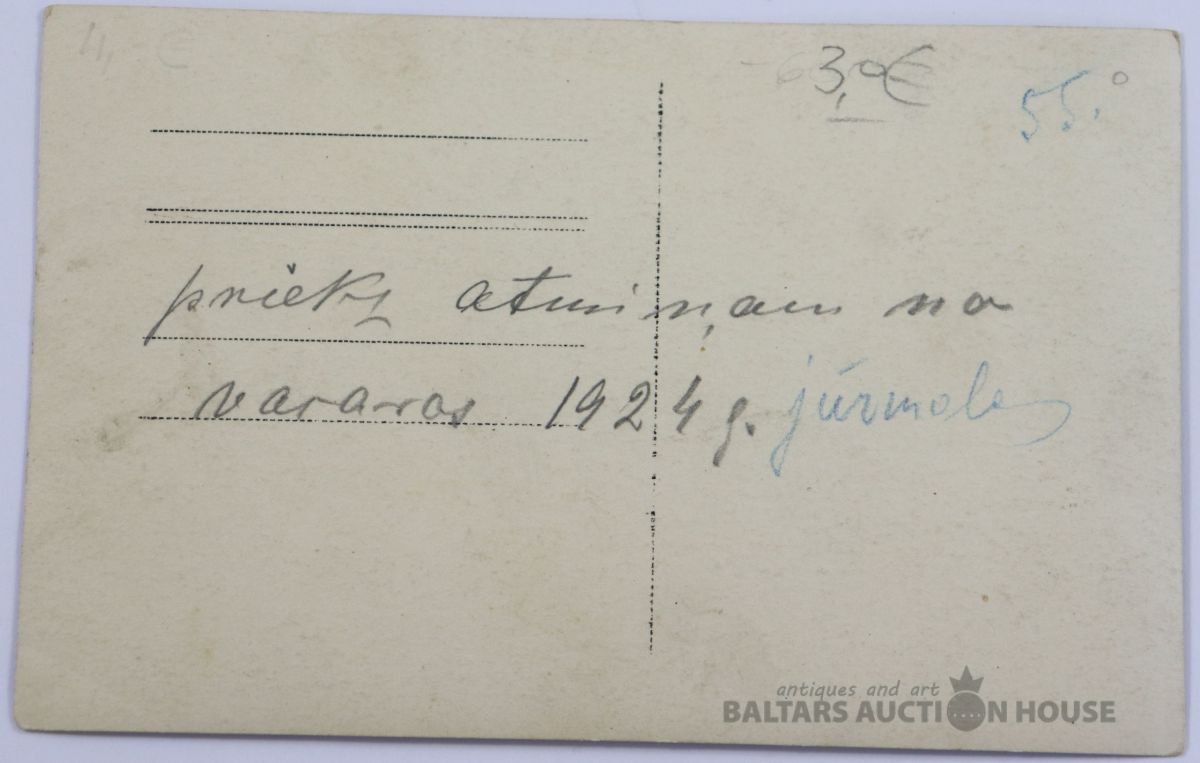 4,- €
3,0€
55.
priekš atmiņam no
vasaras 1924 g. jūrmola
antiques and art
BALTARS AUCTION HOUSE